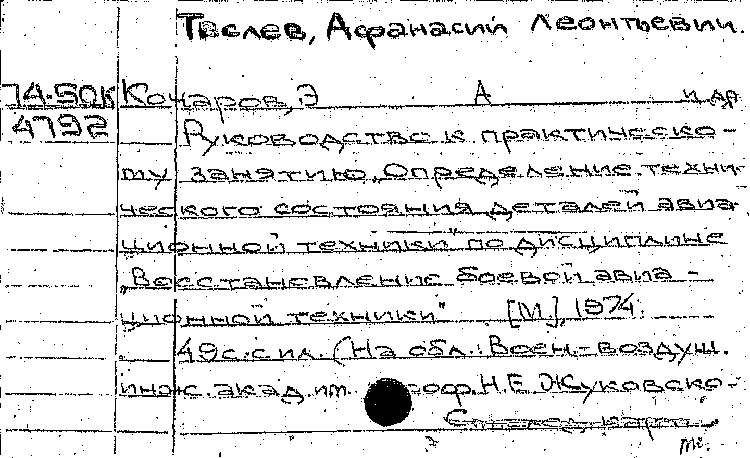 Теслев, Афанасий Леонтьевич.
74-50К Кочаров, Э А и др
4792 Руководство к практическо-
му занятию „Определение техни-
ческого состояния деталей авиа-
ционной техники" по дисциплине
„Восстановление боевой авиа-
ционной техники" [М], 1974.
49с. с ил. (На обл.: Воен.-воздуш.
инж. акад. им. проф. Н.Е. Жуковско-